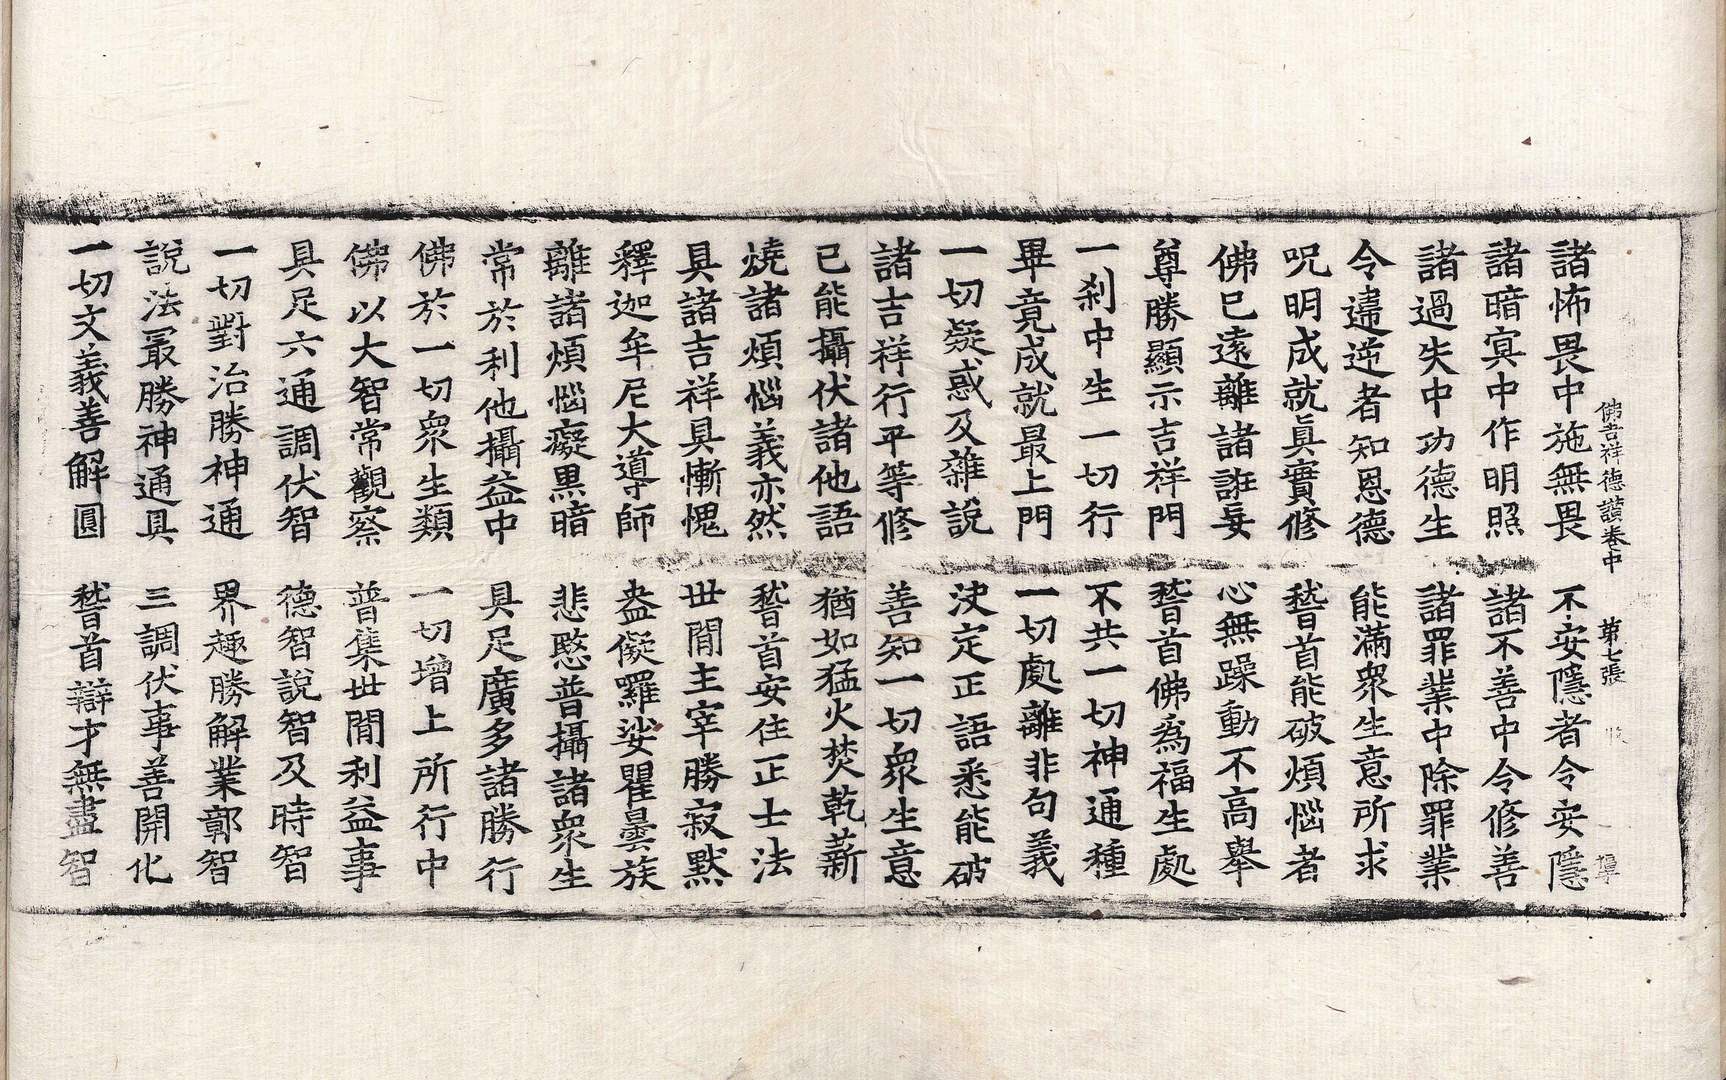 佛吉祥德讃卷中 第七張
諸怖畏中施無畏 不安隱者令安隱
諸暗㝠中作明照 諸不善中令修善
諸過失中功德生 諸罪業中除罪業
令違逆者知恩德 能滿衆生意所求
呪明成就眞實修 䭬首能破煩惱者
佛已遠離諸誑妄 心無躁動不高舉
尊勝顯示吉祥門 䭬首佛為福生處
一剎中生一切行 不共一切神通種
畢竟成就最上門 一切處離非句義
一切疑惑及雜說 決定正語悉能破
諸吉祥行平等修 善知一切衆生意
已能攝伏諸他語 猶如猛火焚乾薪
燒諸煩惱義亦然 䭬首安住正士法
具諸吉祥具慚愧 世閒主宰勝寂默
釋迦牟尼大導師 盎儗囉娑瞿曇族
離諸煩惱癡黒暗 悲愍普攝諸衆生
常於利他攝益中 具足廣多諸勝行
佛於一切衆生類 一切增上所行中
佛以大智常觀察 普集世閒利益事
具足六通調伏智 德智說智及時智
一切對治勝神通 界趣勝解業鄣智
說法最勝神通具 三調伏事善開化
一切文義善解圓 䭬首辯才無盡智